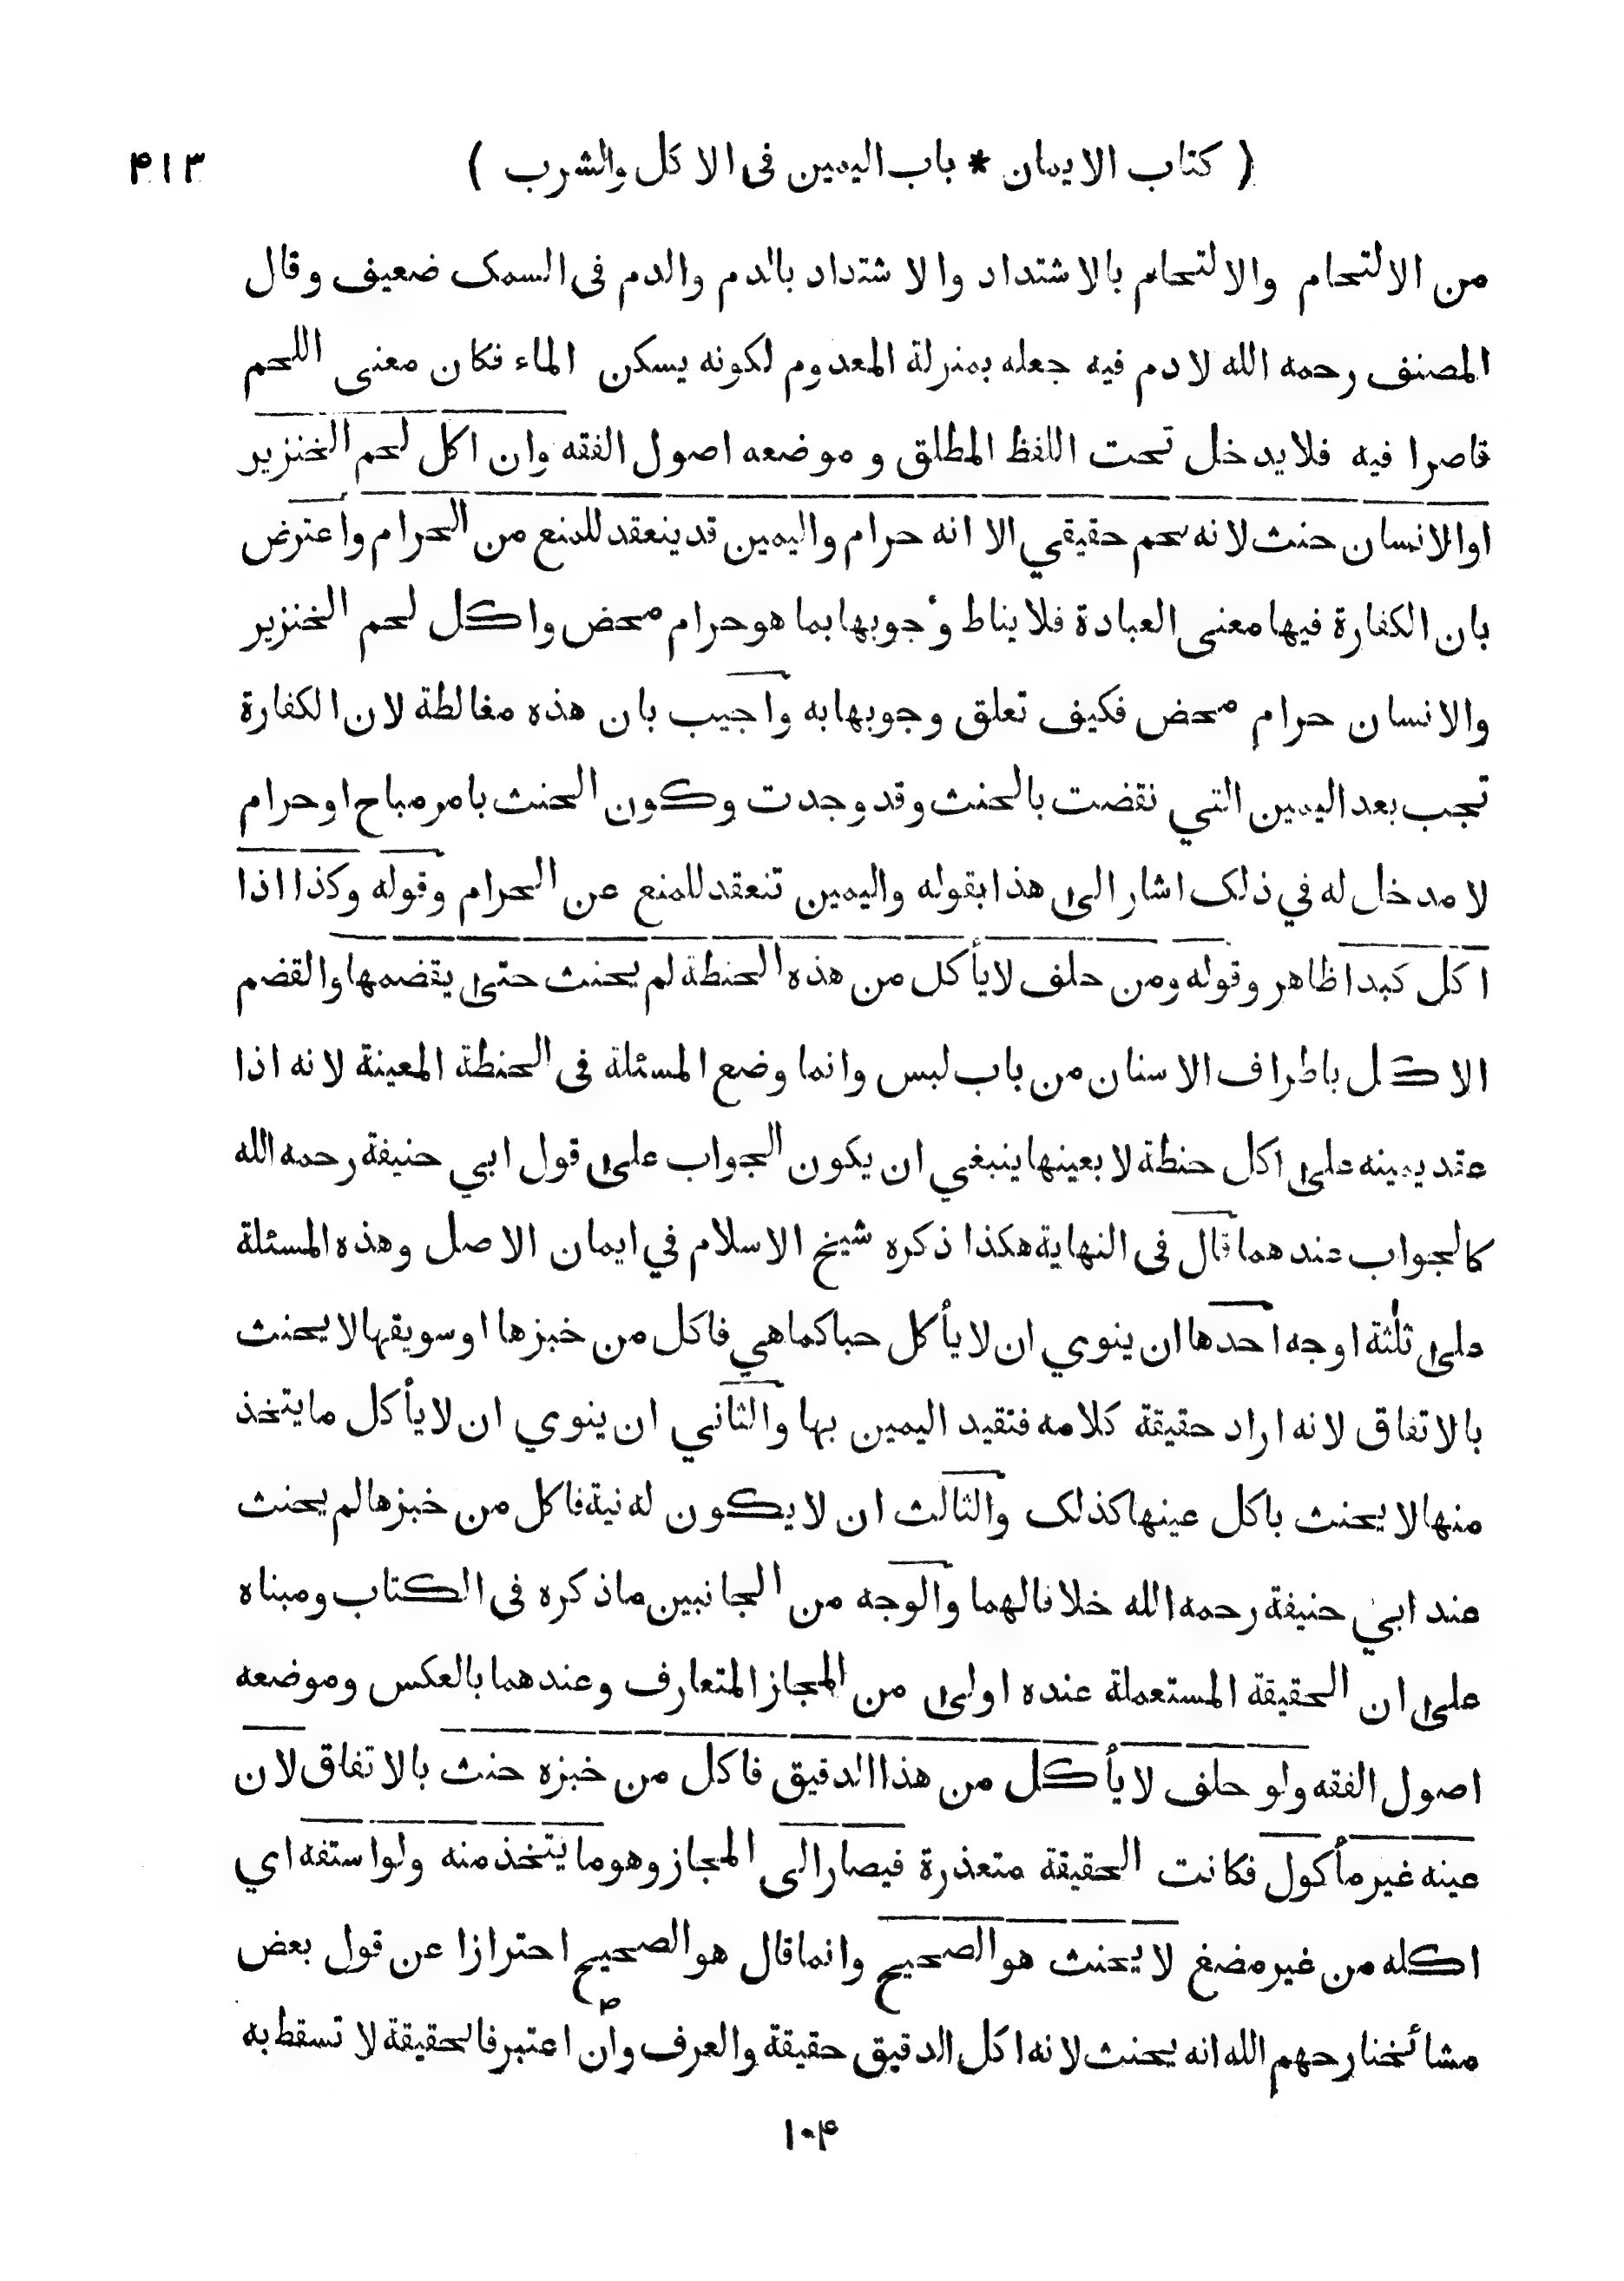 ( كتاب الايمان * باب اليمين فى الاكل والشرب ) ۴۱۳
من الالتحام والالتحام بالاشتداد والاشتداد بالدم والدم فى السمك ضعيف وقال
المصنف رحمه الله لادم فيه جعله بمنزلة المعدوم لكونه يسكن الماء فكان معنى اللحم
قاصرا فيه فلايدخل تحت اللفظ المطلق وموضعه اصول الفقه وان اكل لحم الخنزير
اوالانسان حنث لانه لحم حقيقي الا انه حرام واليمين قدينعقد للمنع من الحرام واعترض
بان الكفارة فيها معنى العبادة فلا يناط وجوبها بما هوحرام محض واكل لحم الخنزير
والانسان حرام محض فكيف تعلق وجوبها به واجيب بان هذه مغالطة لان الكفارة
تجب بعد اليمين التي نقضت بالحنث وقد وجدت وكون الحنث بامر مباح اوحرام
لا مدخل له في ذلك اشار الى هذا بقوله واليمين تنعقد للمنع عن الحرام وقوله وكذا اذا
اكل كبدا ظاهر وقوله ومن حلف لايأكل من هذه الحنطة لم يحنث حتى يقضمها والقضم
الاكل باطراف الاسنان من باب لبس وانما وضع المسئلة فى الحنطة المعينة لانه اذا
عقد يمينه على اكل حنطة لا بعينها ينبغي ان يكون الجواب على قول ابي حنيفة رحمه الله
كالجواب عندهما قال فى النهاية هكذا ذكره شيخ الاسلام في ايمان الاصل وهذه المسئلة
على ثلثة اوجه احدها ان ينوي ان لايأكل حبا كماهي فاكل من خبزها اوسويقها لايحنث
بالاتفاق لانه اراد حقيقة كلامه فتقيد اليمين بها والثاني ان ينوي ان لايأكل مايتخذ
منها لا يحنث باكل عينها كذلك والثالث ان لايكون له نية فاكل من خبزها لم يحنث
عند ابي حنيفة رحمه الله خلافا لهما والوجه من الجانبين ماذكره فى الكتاب ومبناه
على ان الحقيقة المستعملة عنده اولى من المجاز المتعارف وعندهما بالعكس وموضعه
اصول الفقه ولو حلف لايأكل من هذا الدقيق فاكل من خبزه حنث بالاتفاق لان
عينه غير مأكول فكانت الحقيقة متعذرة فيصار الى المجاز وهو ما يتخذ منه ولو استفه اي
اكله من غير مضغ لا يحنث هو الصحيح وانما قال هو الصحيح احترازا عن قول بعض
مشائخنا رحهم الله انه يحنث لانه اكل الدقيق حقيقة والعرف وان اعتبر فالحقيقة لا تسقط به
۱۰۴